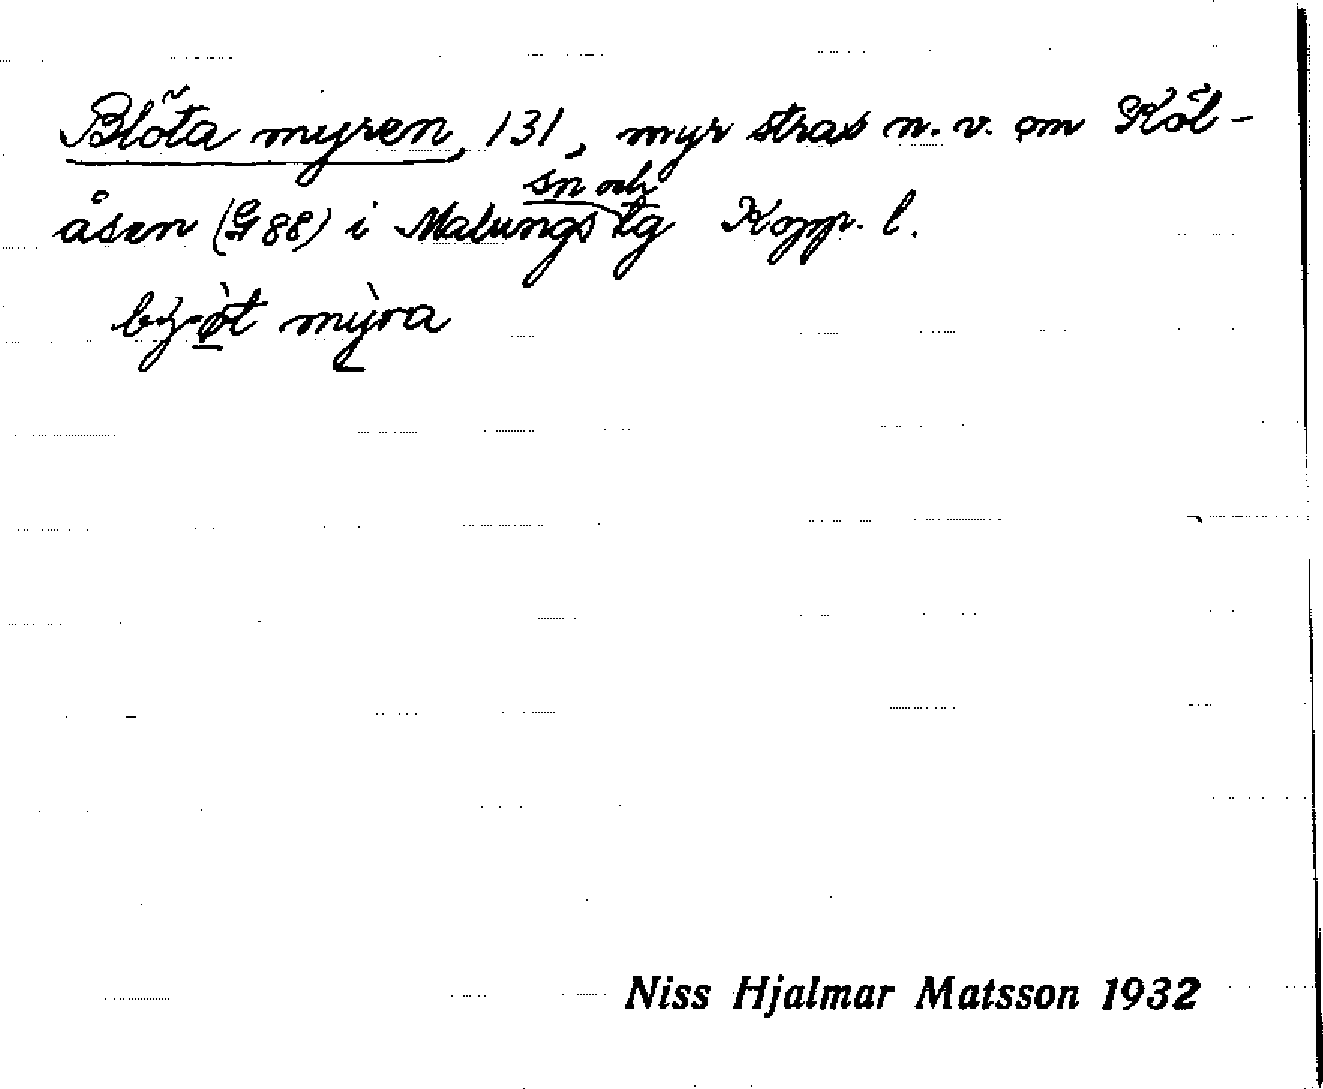 Blöta myren, 131, myr strax n. v. om Köl-
åsen (G 88) i Malungs sn och tg Kopp. l.
mỳra
Niss Hjalmar Matsson 1932